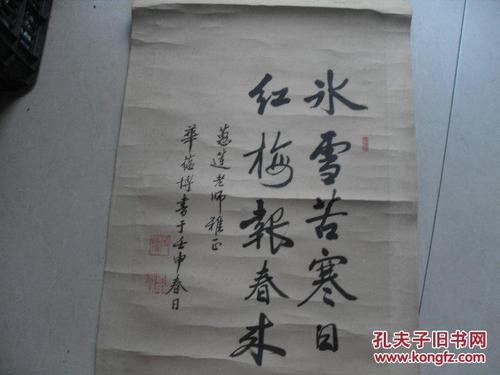 冰雪苦寒日
红梅報春来
蕙莲老师雅正
華蓓樗書于壬申春日
孔夫子旧书网
www.kongfz.com